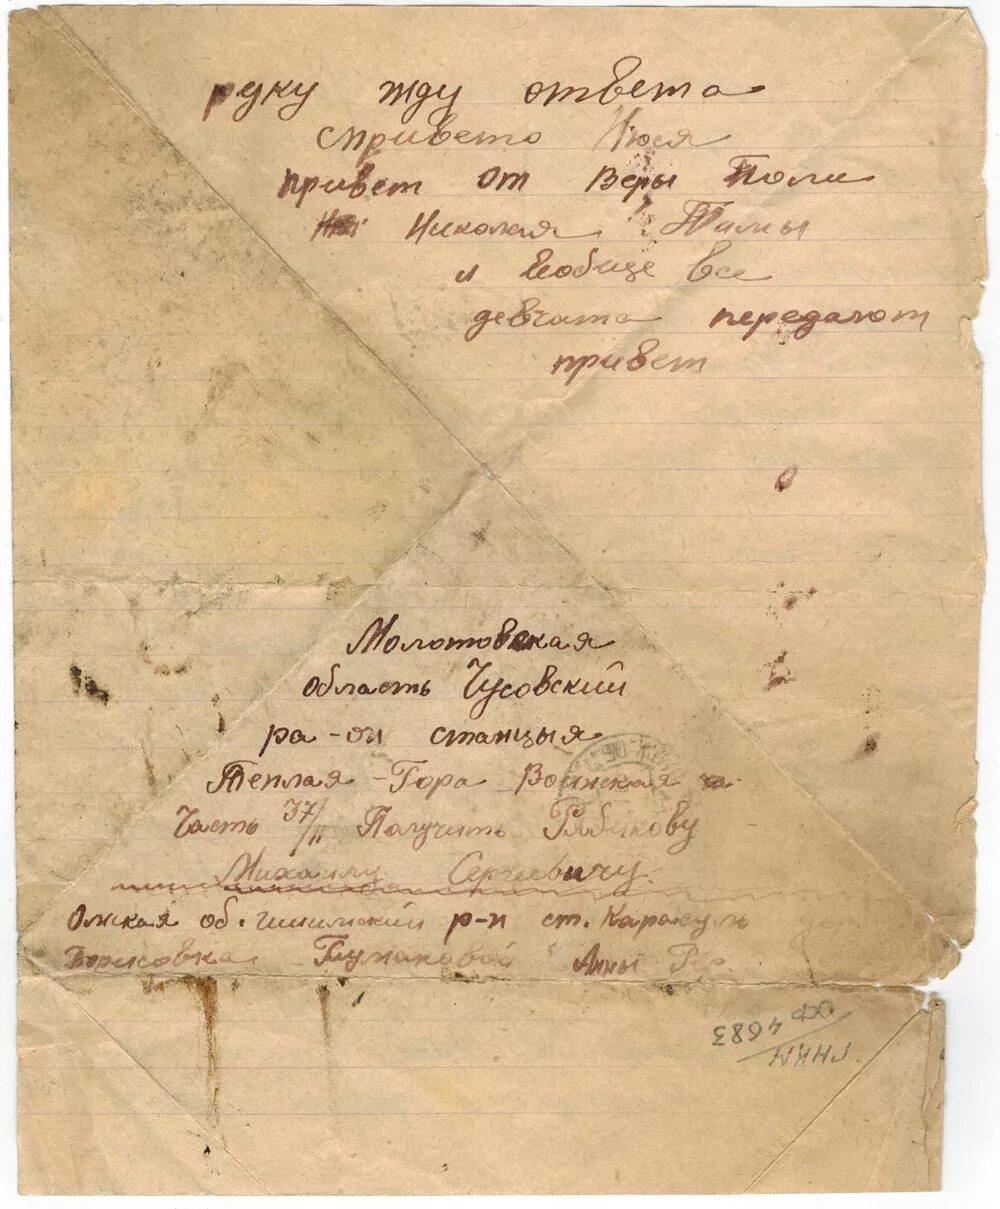 руку жду ответа
с привето Люся
привет от Веры Поли
Николая Томы
и вообще все
девчата передают
привет
Молотовская
область Чусовский
ра-он станцыя
Теплая-Гора Воинская
Часть 37/II Получить Рябикову
Михаилу Сергиевичу.
Омская об. Ишимский р-н ст. Карасуль
Борисовка Глумаковой Анны
ГНКМ
ОФ 4683